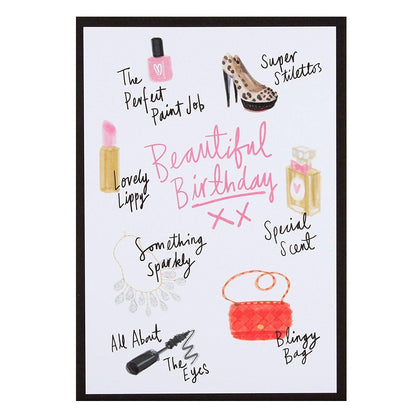 The
Perfect
Paint Job
Super
Stilettos
Beautiful
Birthday
XX
Lovely
Lippy
Special
Scent
Something
Sparkly
All About
The
Eyes
Blingy
Bag